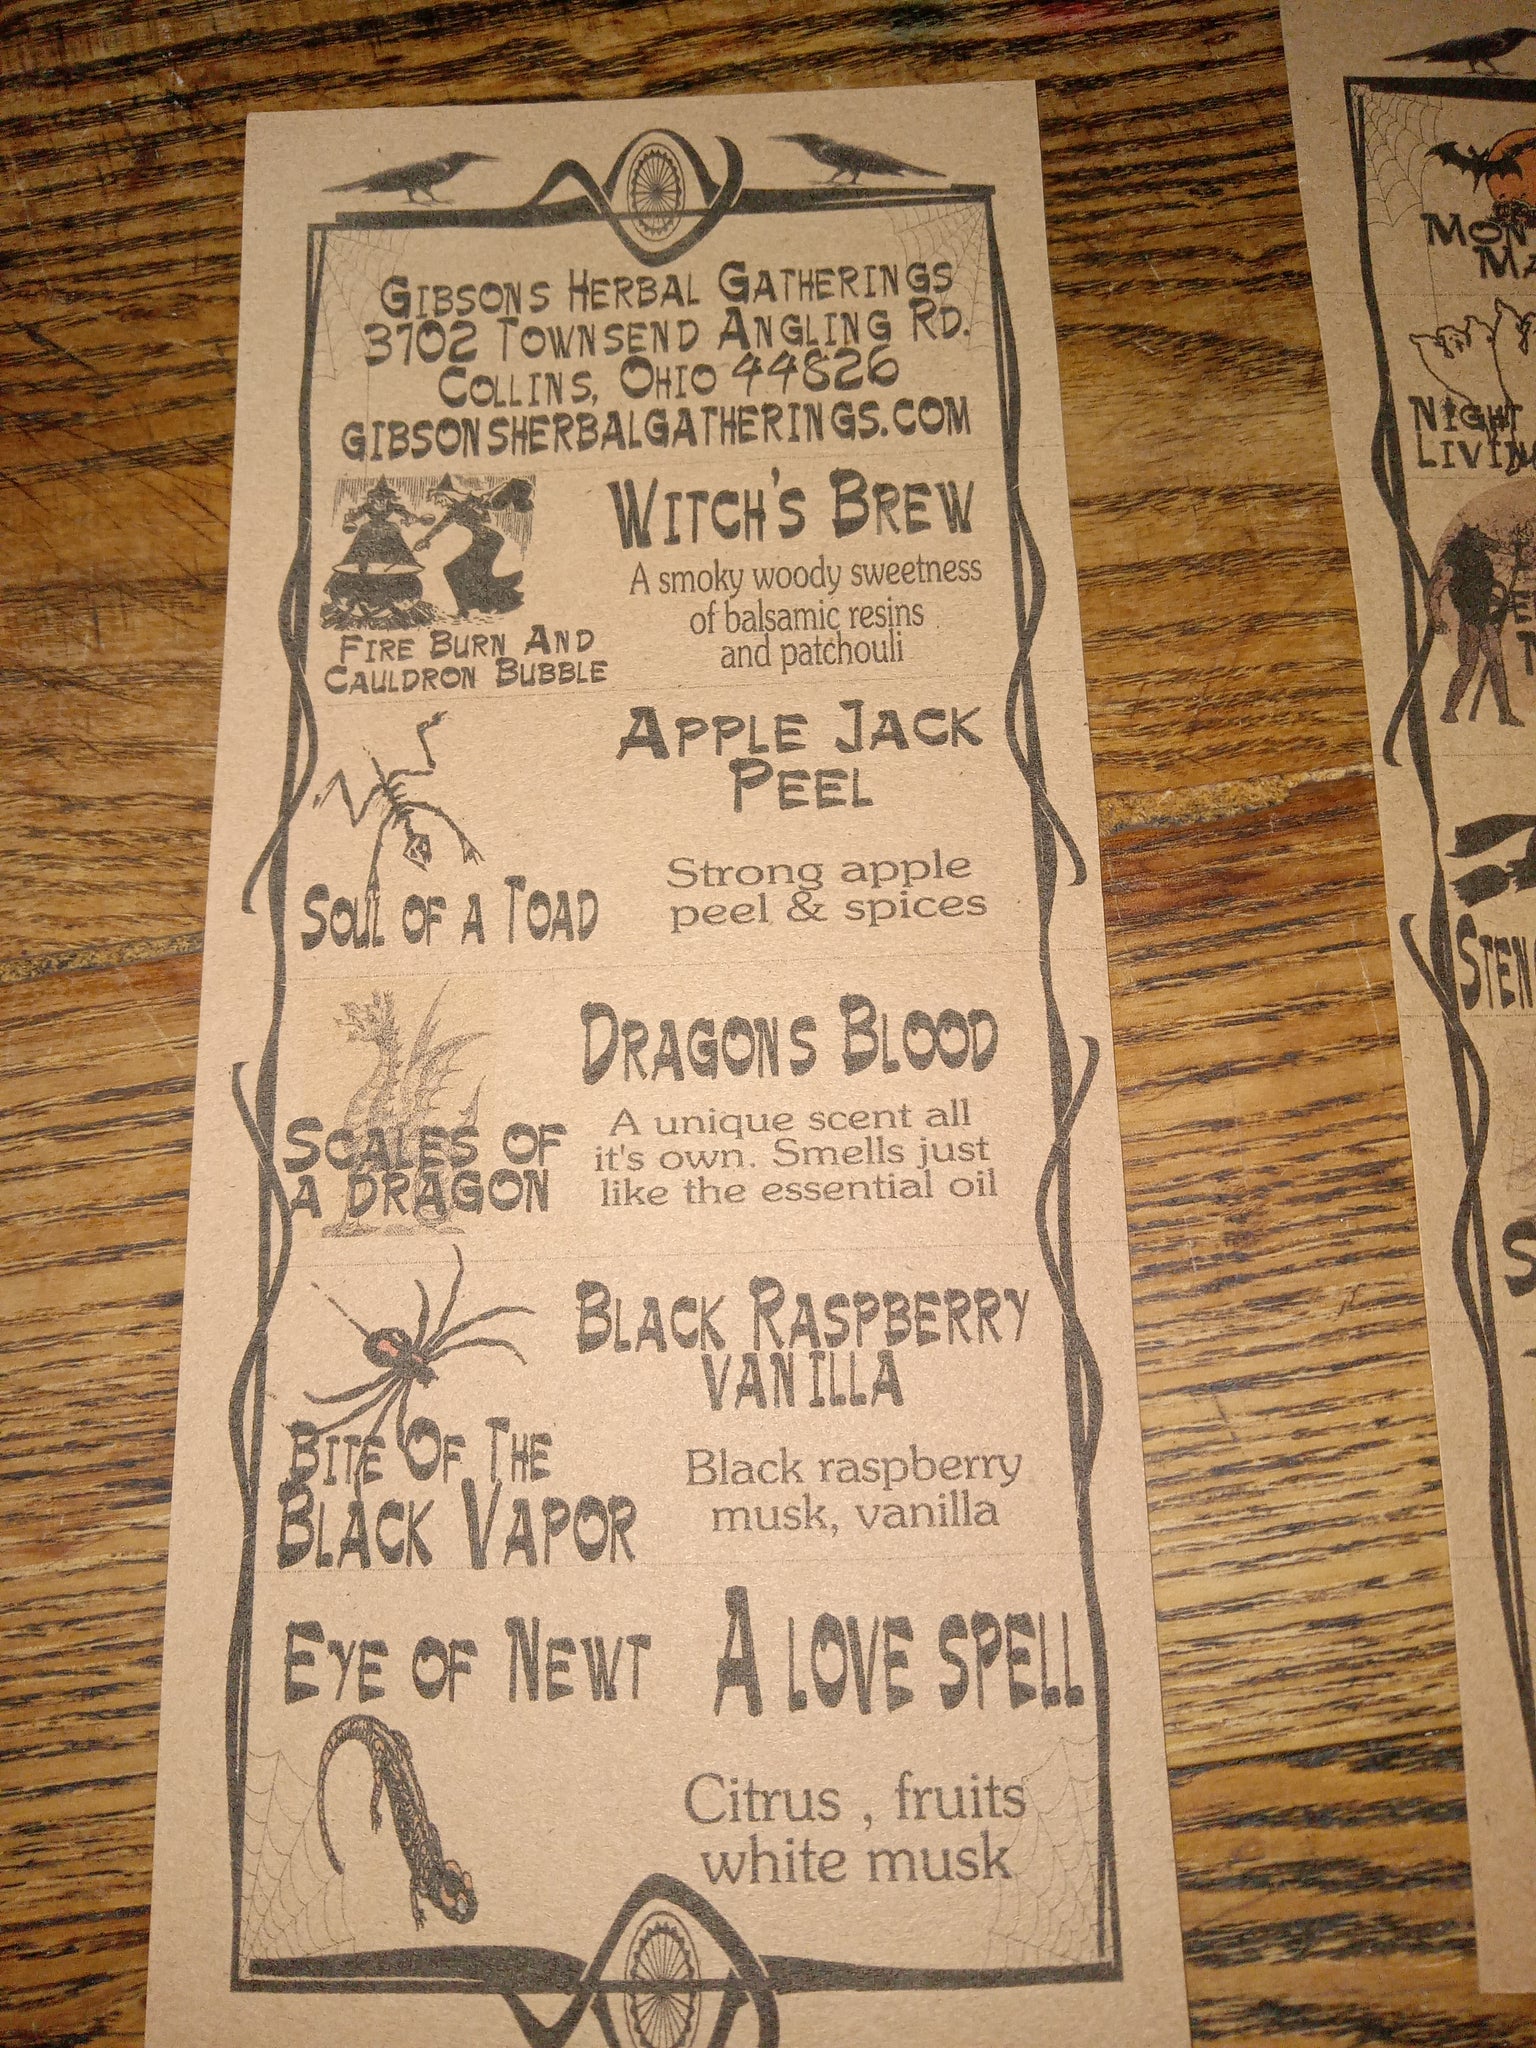 Gibsons Herbal Gatherings
3702 Townsend Angling Rd.
Collins, Ohio 44826
gibsonsherbalgatherings.com
Witch's Brew
A smoky woody sweetness
of balsamic resins
and patchouli
Fire Burn And
Cauldron Bubble
Apple Jack
Peel
Strong apple
peel & spices
Soul of a Toad
Dragons Blood
A unique scent all
it's own. Smells just
like the essential oil
Scales of
a dragon
Black Raspberry
Vanilla
Black raspberry
musk, vanilla
Bite Of The
Black Vapor
Eye of Newt
A love spell
Citrus , fruits
white musk
Night